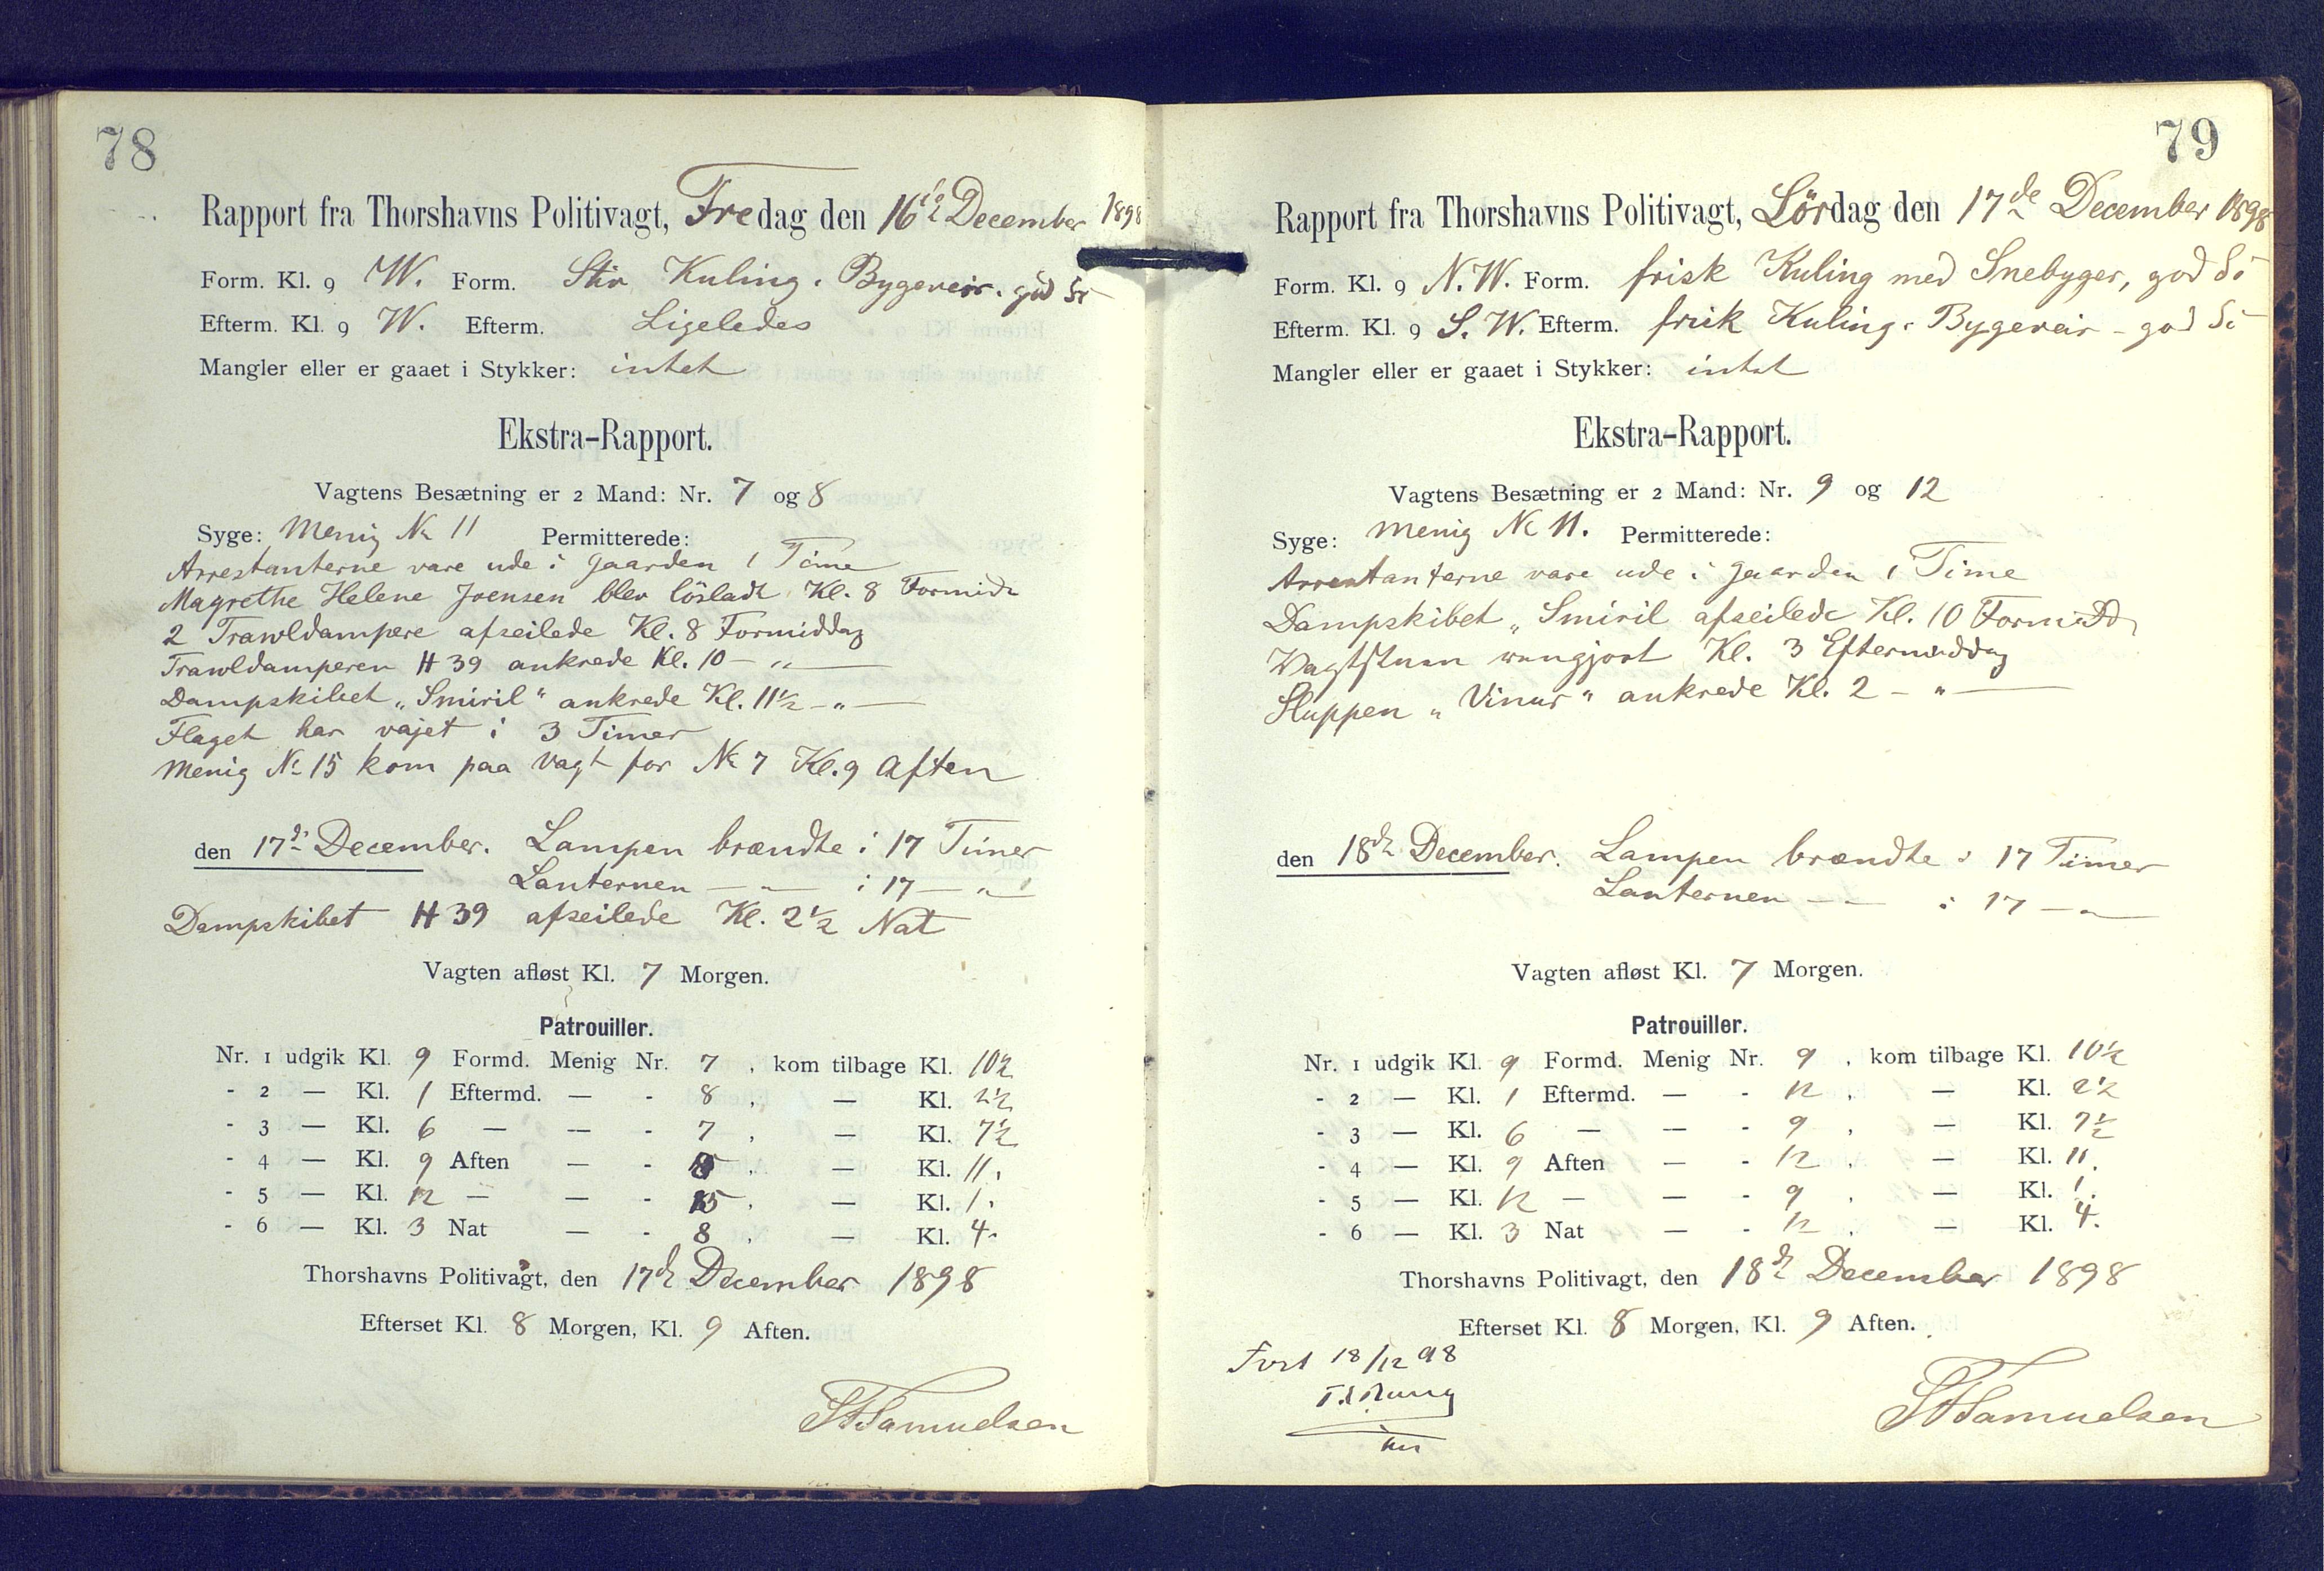 78
Rapport fra Thorshavns Politivagt, Fredag den 16de December 1898
Form. Kl. 9 W. Form. Stiv Kuling. Bygeveir. god Si
Efterm. Kl. 9 W. Efterm. Ligeledes
Mangler eller er gaaet i Stykker: intet
Ekstra-Rapport.
Vagtens Besætning er 2 Mand: Nr. 7 og 8
Syge: Menig Nr 11 Permitterede:
Arrestanterne vare ude i Gaarden 1 Time
Magrethe Helene Joensen blev lösladt Kl. 8 Formid
2 Trawldampere afseilede Kl. 8 Formiddag
Trawldamperen H 39 ankrede Kl. 10 — „ —
Dampskibet „Smiril“ ankrede Kl. 11½ — „ —
Flaget har vajet i 3 Timer
Menig Nr 15 kom paa Vagt for Nr 7 Kl. 9 Aften
den 17de December. Lampen brændte i 17 Timer
Lanternen — „ — i 17 — „
Dampskibet H 39 afseilede Kl. 2½ Nat
Vagten afløst Kl. 7 Morgen.
Patrouiller.
Nr. 1 udgik Kl. 9 Formd. Menig Nr. 7, kom tilbage Kl. 10½
- 2 — Kl. 1 Eftermd. — - 8, — Kl. 2½
- 3 — Kl. 6 — — - 7, — Kl. 7½
- 4 — Kl. 9 Aften — - 8, — Kl. 11.
- 5 — Kl. 12 — — - 15, — Kl. 1.
- 6 — Kl. 3 Nat — - 8, — Kl. 4.
Thorshavns Politivagt, den 17de December 1898
Efterset Kl. 8 Morgen, Kl. 9 Aften.
Samuelsen
79
Rapport fra Thorshavns Politivagt, Lördag den 17de December 1898
Form. Kl. 9 N. W. Form. frisk Kuling med Snebyger, god Si
Efterm. Kl. 9 S. W. Efterm. frisk Kuling. Bygeveir - god Si
Mangler eller er gaaet i Stykker: intet
Ekstra-Rapport.
Vagtens Besætning er 2 Mand: Nr. 9 og 12
Syge: Menig Nr 11. Permitterede:
Arrestanterne vare ude i Gaarden 1 Time
Dampskibet „Smiril afseilede Kl. 10 Formidd
Vagtstuen rengjort Kl. 3 Eftermiddag
Sluppen „Vinur“ ankrede Kl. 2 — „ —
den 18de December. Lampen brændte i 17 Timer
Lanternen — — i 17 — „ —
Vagten afløst Kl. 7 Morgen.
Patrouiller.
Nr. 1 udgik Kl. 9 Formd. Menig Nr. 9, kom tilbage Kl. 10½
- 2 — Kl. 1 Eftermd. — - 12, — Kl. 2½
- 3 — Kl. 6 — — - 9, — Kl. 7½
- 4 — Kl. 9 Aften — - 12, — Kl. 11.
- 5 — Kl. 12 — — - 9, — Kl. 1.
- 6 — Kl. 3 Nat — - 12, — Kl. 4.
Thorshavns Politivagt, den 18de December 1898
Efterset Kl. 8 Morgen, Kl. 9 Aften.
18/12 98
Samuelsen